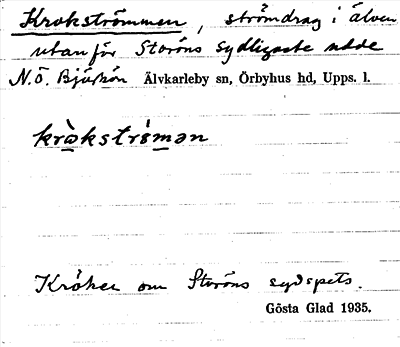 Krokströmmen, strömdrag i älven
utanför Storöns sydligaste udde
N.Ö. Björkön Älvkarleby sn, Örbyhus hd, Upps. l.
kròkströmən
Kröker om Storöns sydspets.
Gösta Glad 1935.